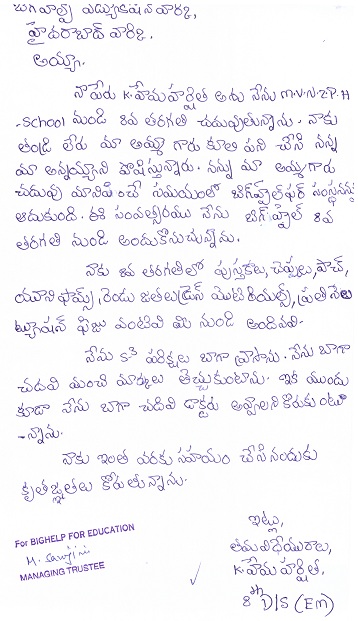 బిగ్ హెల్ప్ ఎడ్యుకేషన్ వారికి,
హైదరాబాద్ వారికి.
అయ్యా.
నా పేరు K.హేమహర్షిత అను నేను M.V.N.Z.P.H
-School నుండి 8వ తరగతి చదువుతున్నాను. నాకు
తండ్రి లేరు మా అమ్మ గారు కూలి పని చేసి నన్ను
మా అన్నయ్యని పోషిస్తున్నారు. నన్ను మా అమ్మగారు
చదువు మానిపించే సమయంలో బిగ్ హెల్ప్ ఫర్ సంస్థ నన్ను
ఆదుకుంది. ఈ సంవత్సరము నేను బిగ్ హెల్ప్ 8వ
తరగతి నుండి అందుకొనుచున్నాను.
నాకు 8వ తరగతిలో పుస్తకాలు, చెప్పులు, పౌచ్,
యూనిఫామ్స్, రెండు జతలు డ్రస్ మెటీరియల్స్, ప్రతి నెల
ట్యూషన్ ఫీజు వంటివి మీ నుండి అందినవి.
నేను S-3 పరీక్షలు బాగా వ్రాసాను. నేను బాగా
చదివి మంచి మార్కులు తెచ్చుకుంటాను. ఇక ముందు
కూడా నేను బాగా చదివి డాక్టరు అవ్వాలని కోరుకుంటు
-న్నాను.
నాకు ఇంత వరకు సహాయం చేసినందుకు
కృతజ్ఞతలు తెలుపుతున్నాను.
ఇట్లు,
తమ విధేయురాలు,
K.హేమ హర్షిత.
8th D/S (EM)
For BIGHELP FOR EDUCATION
MANAGING TRUSTEE